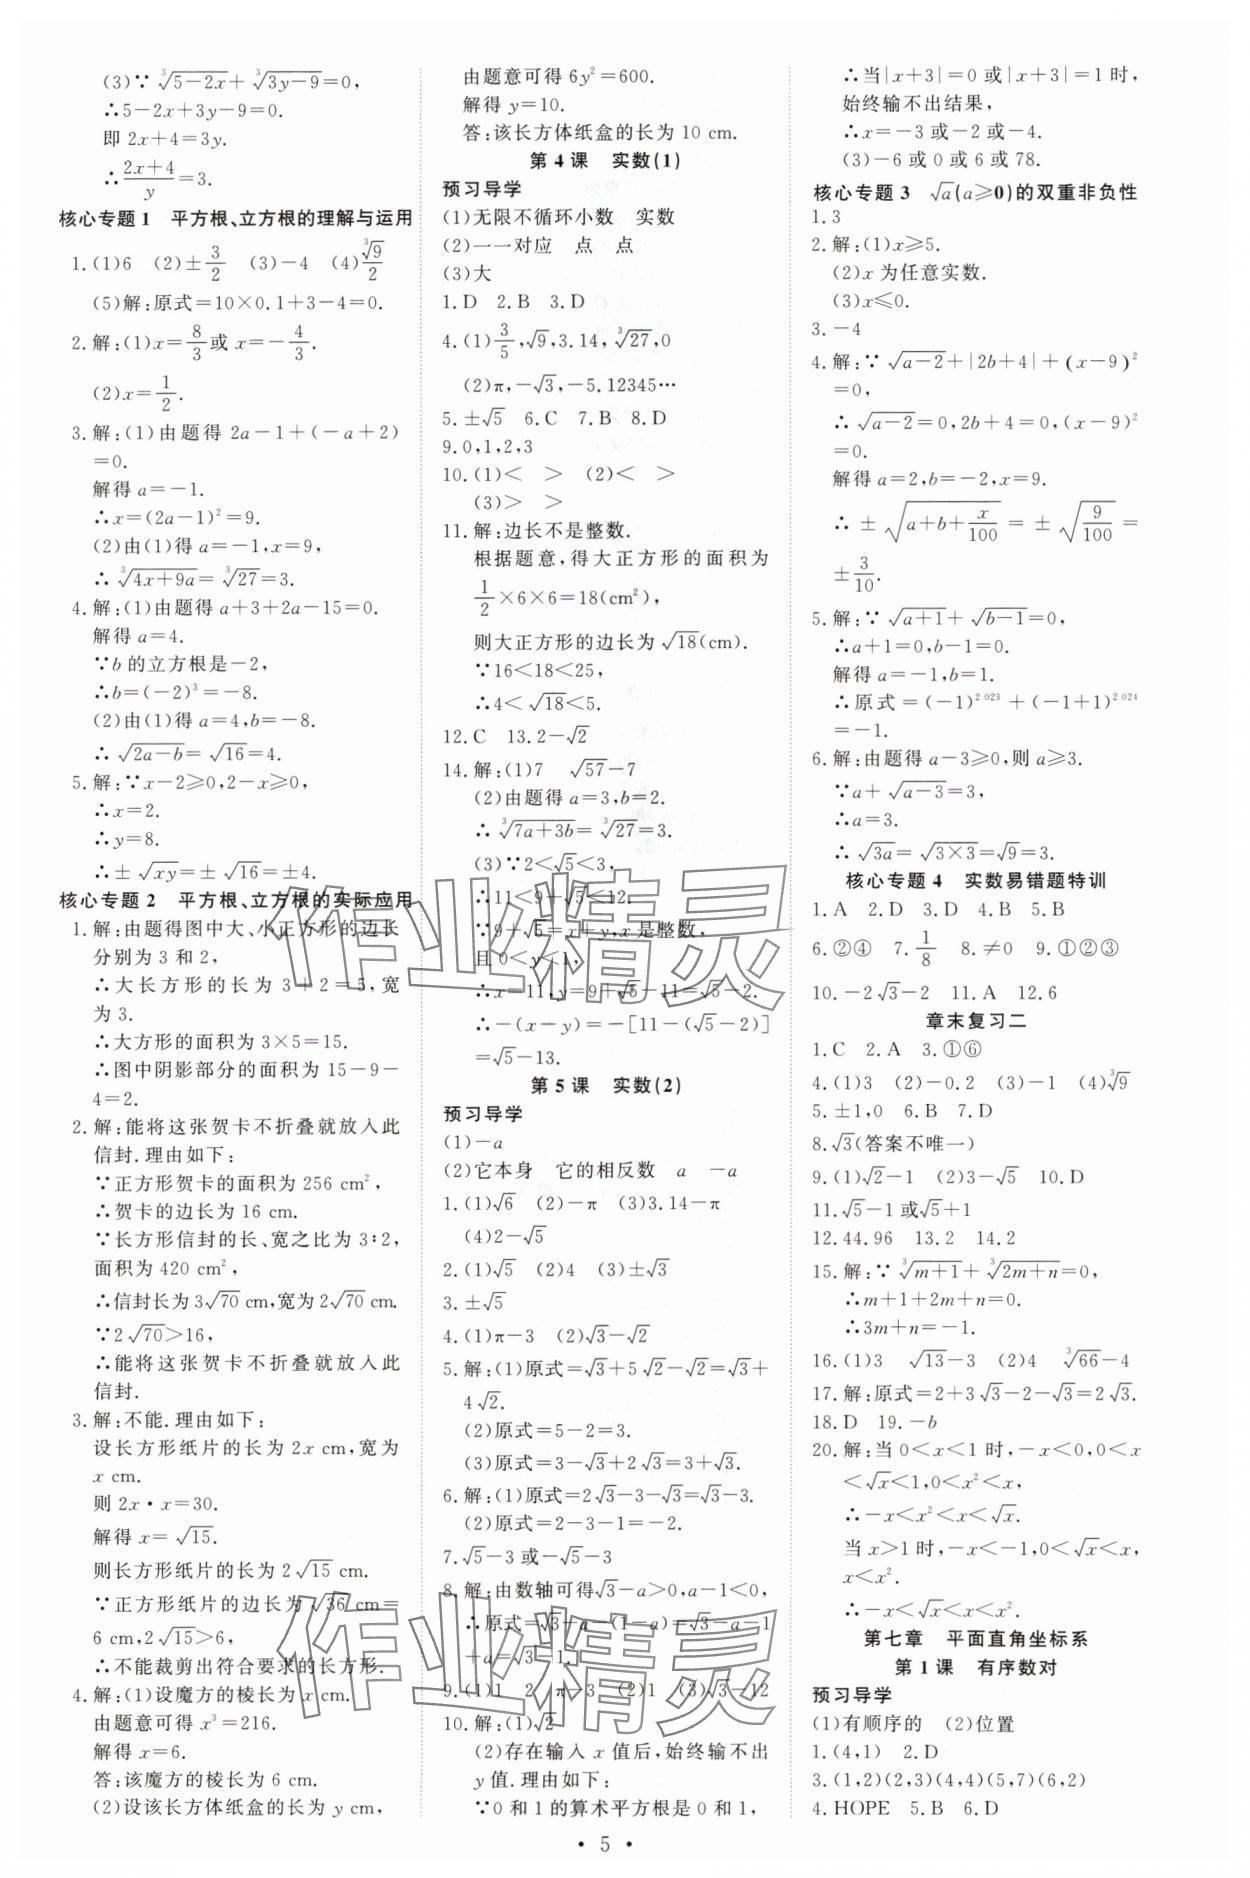 (3)∵∛(5-2x)+∛(3y-9)=0,
∴5-2x+3y-9=0.
即 2x+4=3y.
∴(2x+4)/y=3.
核心专题 1 平方根、立方根的理解与运用
1.(1)6 (2)±3/2 (3)-4 (4)∛9/2
(5)解:原式=10×0.1+3-4=0.
2.解:(1)x=8/3或 x=-4/3.
(2)x=1/2.
3.解:(1)由题得 2a-1+(-a+2)
=0.
解得 a=-1.
∴x=(2a-1)²=9.
(2)由(1)得 a=-1,x=9,
∴∛(4x+9a)=∛27=3.
4.解:(1)由题得 a+3+2a-15=0.
解得 a=4.
∵b 的立方根是-2,
∴b=(-2)³=-8.
(2)由(1)得 a=4,b=-8.
∴√(2a-b)=√16=4.
5.解:∵x-2≥0,2-x≥0,
∴x=2.
∴y=8.
∴±√(xy)=±√16=±4.
核心专题 2 平方根、立方根的实际应用
1.解:由题得图中大、小正方形的边长
分别为 3 和 2,
∴大长方形的长为 3+2=5,宽
为 3.
∴大方形的面积为 3×5=15.
∴图中阴影部分的面积为 15-9-
4=2.
2.解:能将这张贺卡不折叠就放入此
信封.理由如下:
∵正方形贺卡的面积为 256 cm²,
∴贺卡的边长为 16 cm.
∵长方形信封的长、宽之比为 3∶2,
面积为 420 cm²,
∴信封长为 3√70 cm,宽为 2√70 cm.
∵2√70>16,
∴能将这张贺卡不折叠就放入此
信封.
3.解:不能.理由如下:
设长方形纸片的长为 2x cm,宽为
x cm.
则 2x·x=30.
解得 x=√15.
则长方形纸片的长为 2√15 cm.
∵正方形纸片的边长为√36 cm=
6 cm,2√15>6,
∴不能裁剪出符合要求的长方形.
4.解:(1)设魔方的棱长为 x cm,
由题意可得 x³=216.
解得 x=6.
答:该魔方的棱长为 6 cm.
(2)设该长方体纸盒的长为 y cm,
由题意可得 6y²=600.
解得 y=10.
答:该长方体纸盒的长为 10 cm.
第 4 课 实数(1)
预习导学
(1)无限不循环小数 实数
(2)一一对应 点 点
(3)大
1.D 2.B 3.D
4.(1)3/5,√9,3.14,∛27,0
(2)π,-√3,-5.12345…
5.±√5 6.C 7.B 8.D
9.0,1,2,3
10.(1)< > (2)< >
(3)> >
11.解:边长不是整数.
根据题意,得大正方形的面积为
1/2×6×6=18(cm²),
则大正方形的边长为√18(cm).
∵16<18<25,
∴4<√18<5.
12.C 13.2-√2
14.解:(1)7 √57-7
(2)由题得 a=3,b=2.
∴∛(7a+3b)=∛27=3.
(3)∵2<√5<3,
∴11<9+√5<12.
∵9+√5=x+y,x 是整数,
且 0<y<1,
∴x=11,y=9+√5-11=√5-2.
∴-(x-y)=-[11-(√5-2)]
=√5-13.
第 5 课 实数(2)
预习导学
(1)-a
(2)它本身 它的相反数 a -a
1.(1)√6 (2)-π (3)3.14-π
(4)2-√5
2.(1)√5 (2)4 (3)±√3
3.±√5
4.(1)π-3 (2)√3-√2
5.解:(1)原式=√3+5√2-√2=√3+
4√2.
(2)原式=5-2=3.
(3)原式=3-√3+2√3=3+√3.
6.解:(1)原式=2√3-3-√3=√3-3.
(2)原式=2-3-1=-2.
7.√5-3 或-√5-3
8.解:由数轴可得√3-a>0,a-1<0,
∴原式=√3-a-(1-a)=√3-a-1
+a=√3-1.
9.(1)1 2 π-3 (2)1 (3)√3-12
10.解:(1)√2
(2)存在输入 x 值后,始终输不出
y 值.理由如下:
∵0 和 1 的算术平方根是 0 和 1,
∴当|x+3|=0 或|x+3|=1 时,
始终输不出结果,
∴x=-3 或-2 或-4.
(3)-6 或 0 或 6 或 78.
核心专题 3 √a(a≥0)的双重非负性
1.3
2.解:(1)x≥5.
(2)x 为任意实数.
(3)x≤0.
3.-4
4.解:∵√(a-2)+|2b+4|+(x-9)²
=0,
∴√(a-2)=0,2b+4=0,(x-9)²
=0.
解得 a=2,b=-2,x=9.
∴±√(a+b+x/100)=±√(9/100)=
±3/10.
5.解:∵√(a+1)+√(b-1)=0,
∴a+1=0,b-1=0.
解得 a=-1,b=1.
∴原式=(-1)²⁰²³+(-1+1)²⁰²⁴
=-1.
6.解:由题得 a-3≥0,则 a≥3.
∵a+√(a-3)=3,
∴a=3.
∴√(3a)=√(3×3)=√9=3.
核心专题 4 实数易错题特训
1.A 2.D 3.D 4.B 5.B
6.②④ 7.1/8 8.≠0 9.①②③
10.-2√3-2 11.A 12.6
章末复习二
1.C 2.A 3.①⑥
4.(1)3 (2)-0.2 (3)-1 (4)∛9
5.±1,0 6.B 7.D
8.√3(答案不唯一)
9.(1)√2-1 (2)3-√5 10.D
11.√5-1 或√5+1
12.44.96 13.2 14.2
15.解:∵∛(m+1)+∛(2m+n)=0,
∴m+1+2m+n=0.
∴3m+n=-1.
16.(1)3 √13-3 (2)4 ∛66-4
17.解:原式=2+3√3-2-√3=2√3.
18.D 19.-b
20.解:当 0<x<1 时,-x<0,0<x
<√x<1,0<x²<x,
∴-x<x²<x<√x.
当 x>1 时,-x<-1,0<√x<x,
x<x².
∴-x<√x<x<x².
第七章 平面直角坐标系
第 1 课 有序数对
预习导学
(1)有顺序的 (2)位置
1.(4,1) 2.D
3.(1,2)(2,3)(4,4)(5,7)(6,2)
4.HOPE 5.B 6.D
·5·
作业精灵
作业精灵